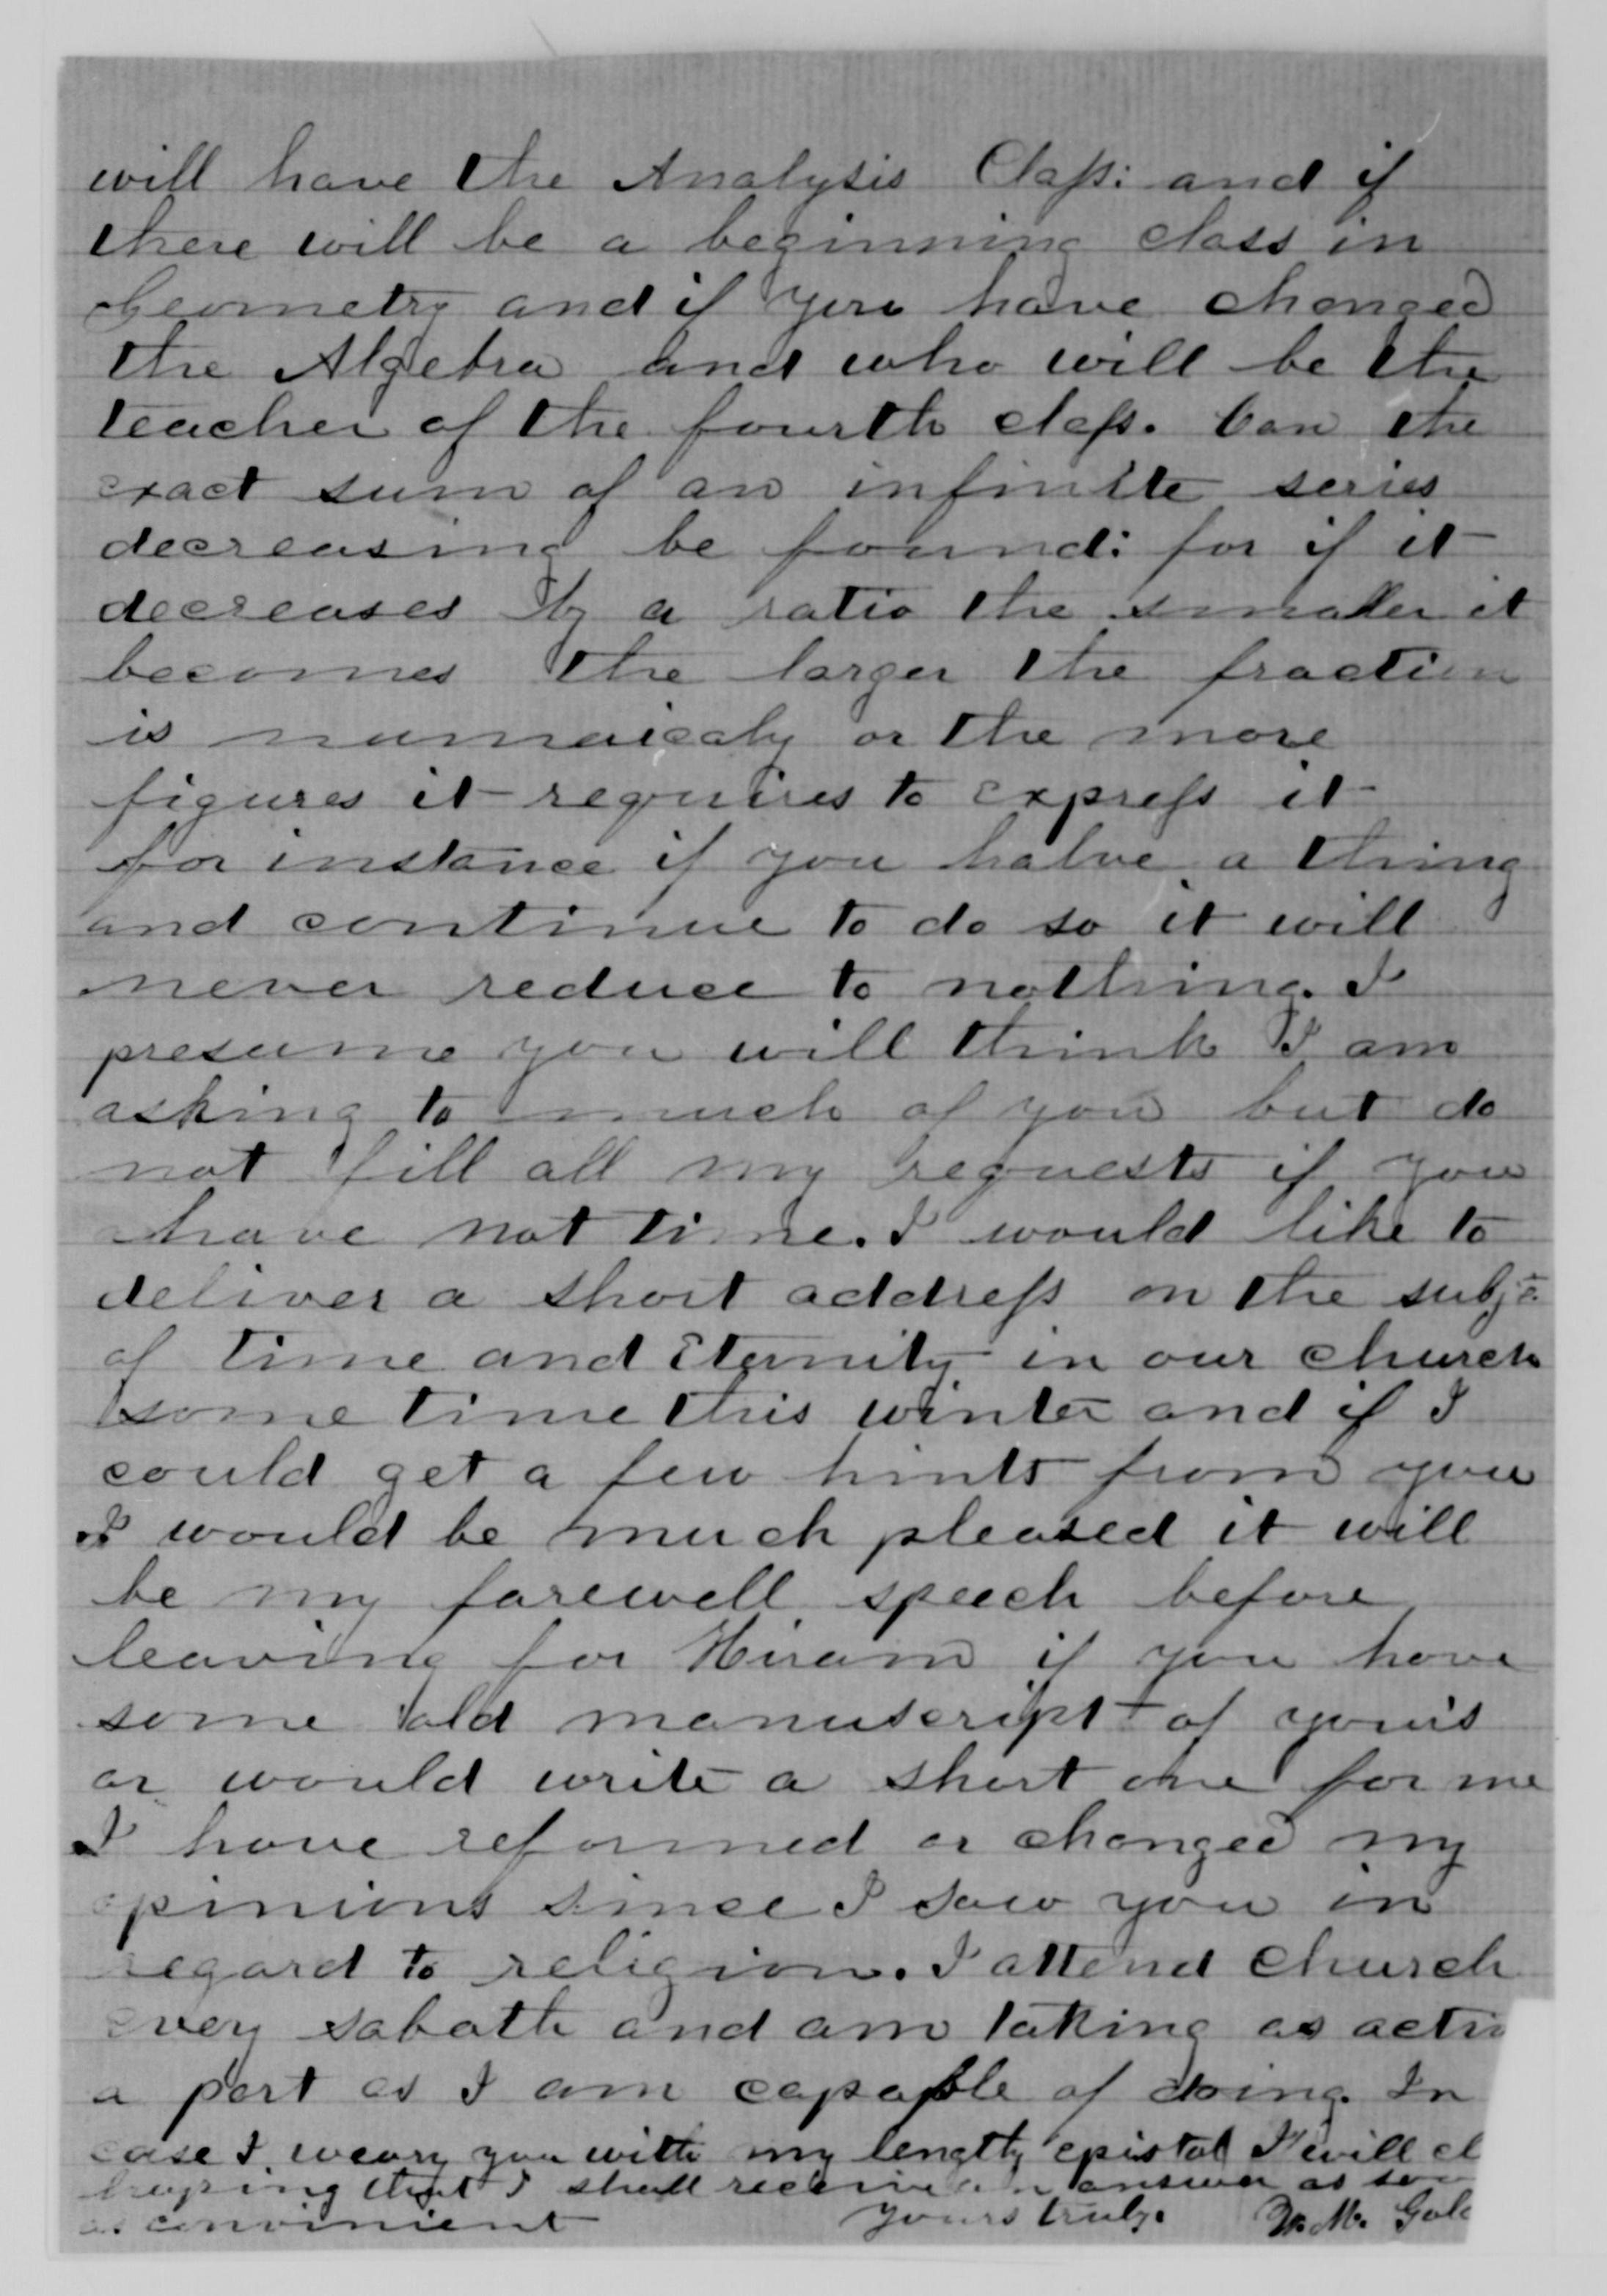 will have the Analysis Claſs: and if
there will be a beginning class in
Geometry and if you have changed
the Algebra and who will be the
teacher of the fourth claſs. Can the
exact sum of an infinite series
decreasing be found: for if it
decreases by a ratio the smaller it
becomes the larger the fraction
is numericaly or the more
figures it requires to expreſs it
for instance if you halve a thing
and continue to do so it will
never reduce to nothing. I
presume you will think I am
asking to much of you but do
not fill all my requests if you
have not time. I would like to
deliver a short addreſs on the subjt.
of time and Eternity in our church
some time this winter and if I
could get a few hints from you
I would be much pleased it will
be my farewell speech before
leaving for Hiram if you have
some old manuscript of yours
or would write a short one for me
I have reformed or changed my
opinions since I saw you in
regard to religion. I attend church
every sabath and am taking as activ
a part as I am capable of doing. In
case I weary you with my lengthy epistol I will cl
hoping that I shall receive an answer as soo
as convinient Yours truly. M. Gol